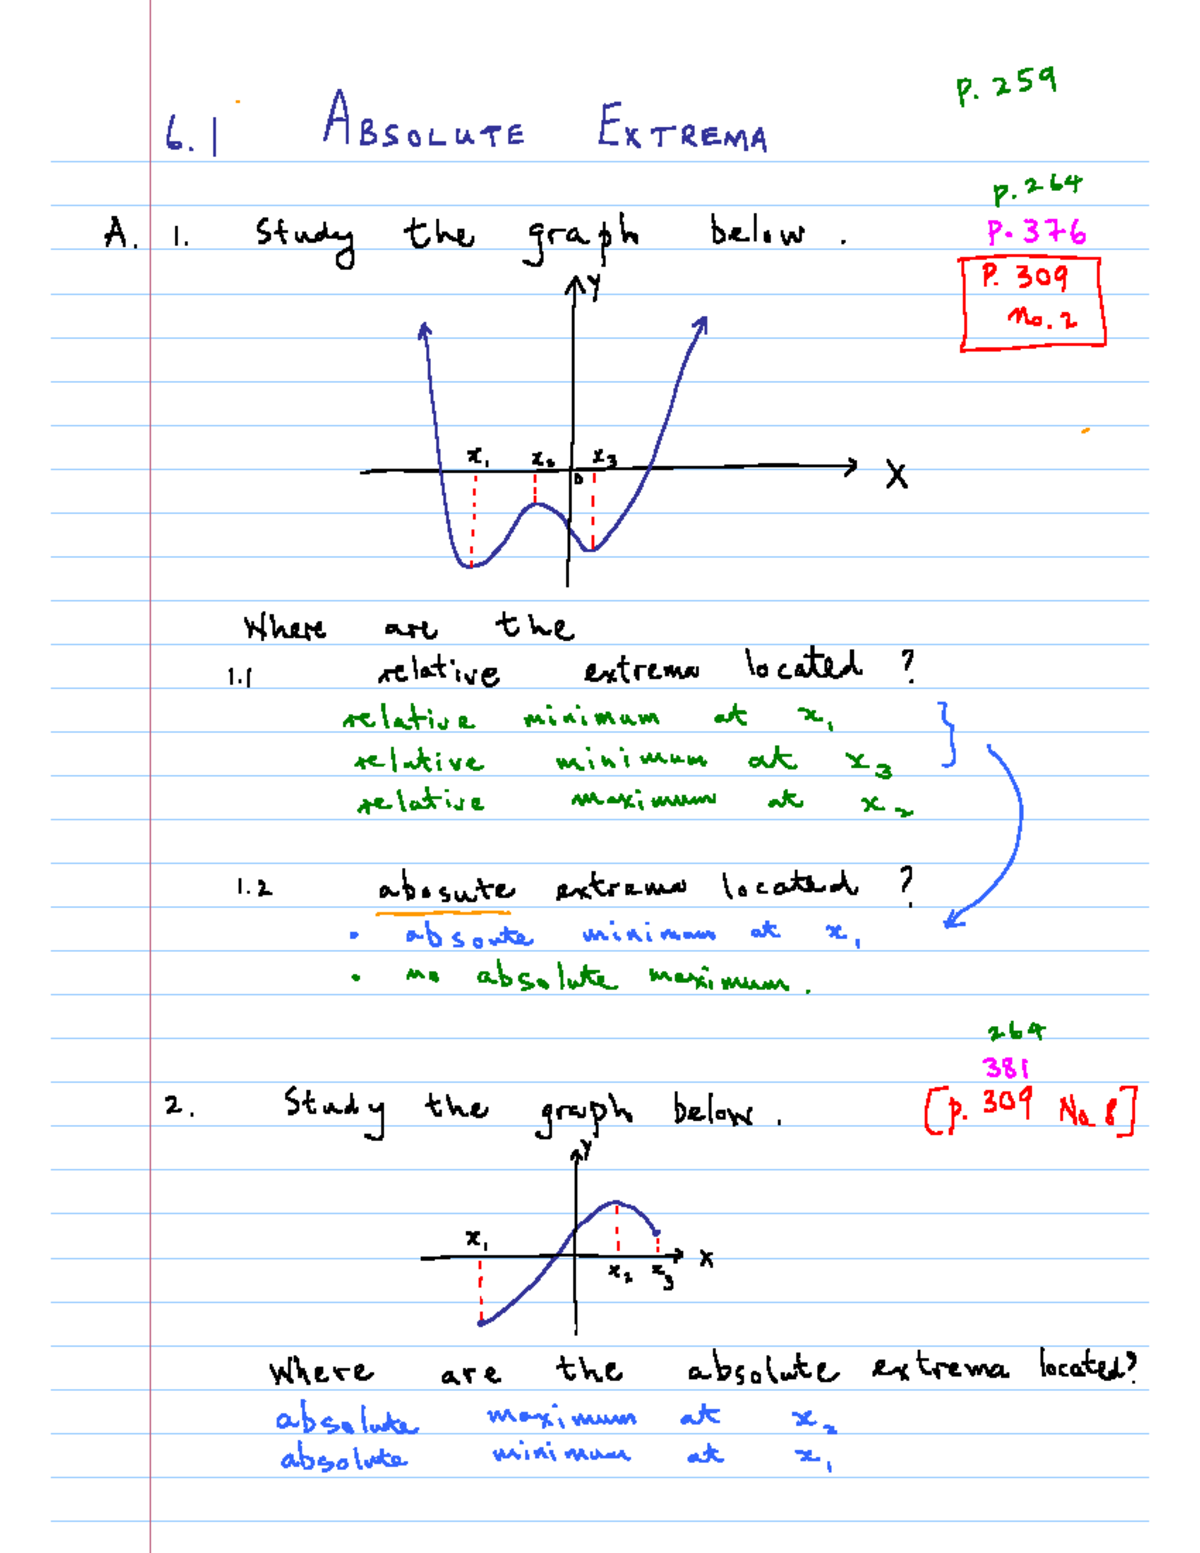 P. 259
6.1 ABSOLUTE EXTREMA
p. 264
A. 1. Study the graph below.
P. 376
P. 309
No. 2
Y
x₁ x₂ x₃
0
X
Where are the
1.1 relative extrema located ?
relative minimum at x₁
relative minimum at x₃
relative maximum at x₂
1.2 abosute extrema located ?
• absoute minimum at x₁
• no absolute maximum.
264
381
2. Study the graph below.
[p. 309 No 8]
Y
x₁
X
x₂ x₃
Where are the absolute extrema located?
absolute maximum at x₂
absolute minimum at x₁